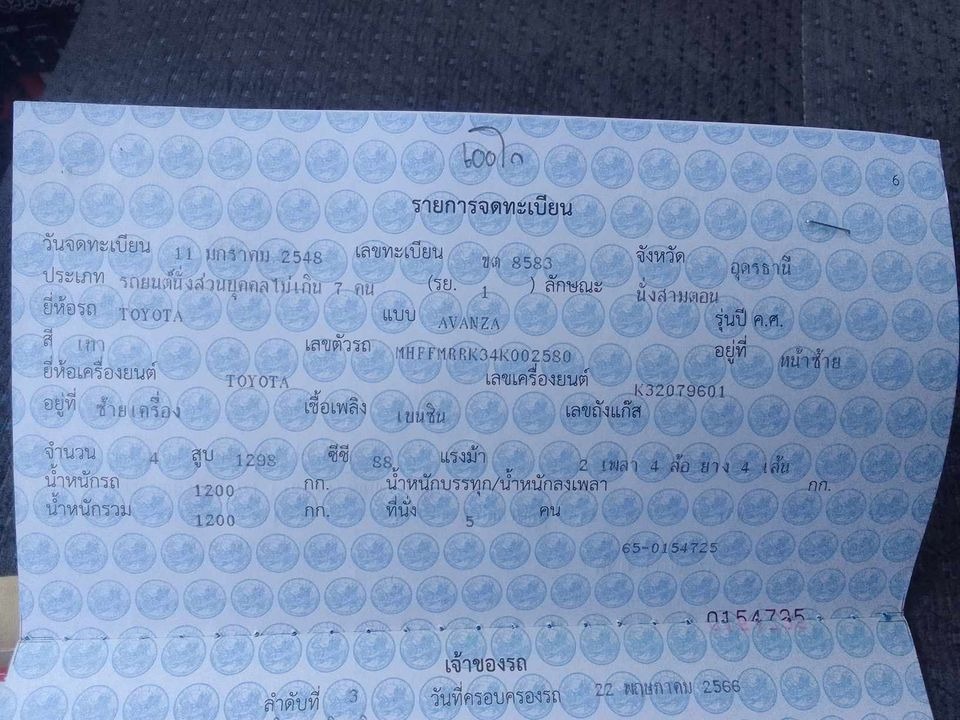 6
รายการจดทะเบียน
วันจดทะเบียน 11 มกราคม 2548 เลขทะเบียน ขต 8583 จังหวัด อุดรธานี
ประเภท รถยนต์นั่งส่วนบุคคลไม่เกิน 7 คน (รย. 1 ) ลักษณะ นั่งสามตอน
ยี่ห้อรถ TOYOTA แบบ AVANZA รุ่นปี ค.ศ.
สี เทา เลขตัวรถ MHFFMRRK34K002580 อยู่ที่ หน้าซ้าย
ยี่ห้อเครื่องยนต์ TOYOTA เลขเครื่องยนต์ K32079601
อยู่ที่ ซ้ายเครื่อง เชื้อเพลิง เบนซิน เลขถังแก๊ส
จำนวน 4 สูบ 1298 ซีซี 88 แรงม้า 2 เพลา 4 ล้อ ยาง 4 เส้น
น้ำหนักรถ 1200 กก. น้ำหนักบรรทุก/น้ำหนักลงเพลา กก.
น้ำหนักรวม 1200 กก. ที่นั่ง 5 คน
65-0154725
เจ้าของรถ
ลำดับที่ 3 วันที่ครอบครองรถ 22 พฤษภาคม 2566